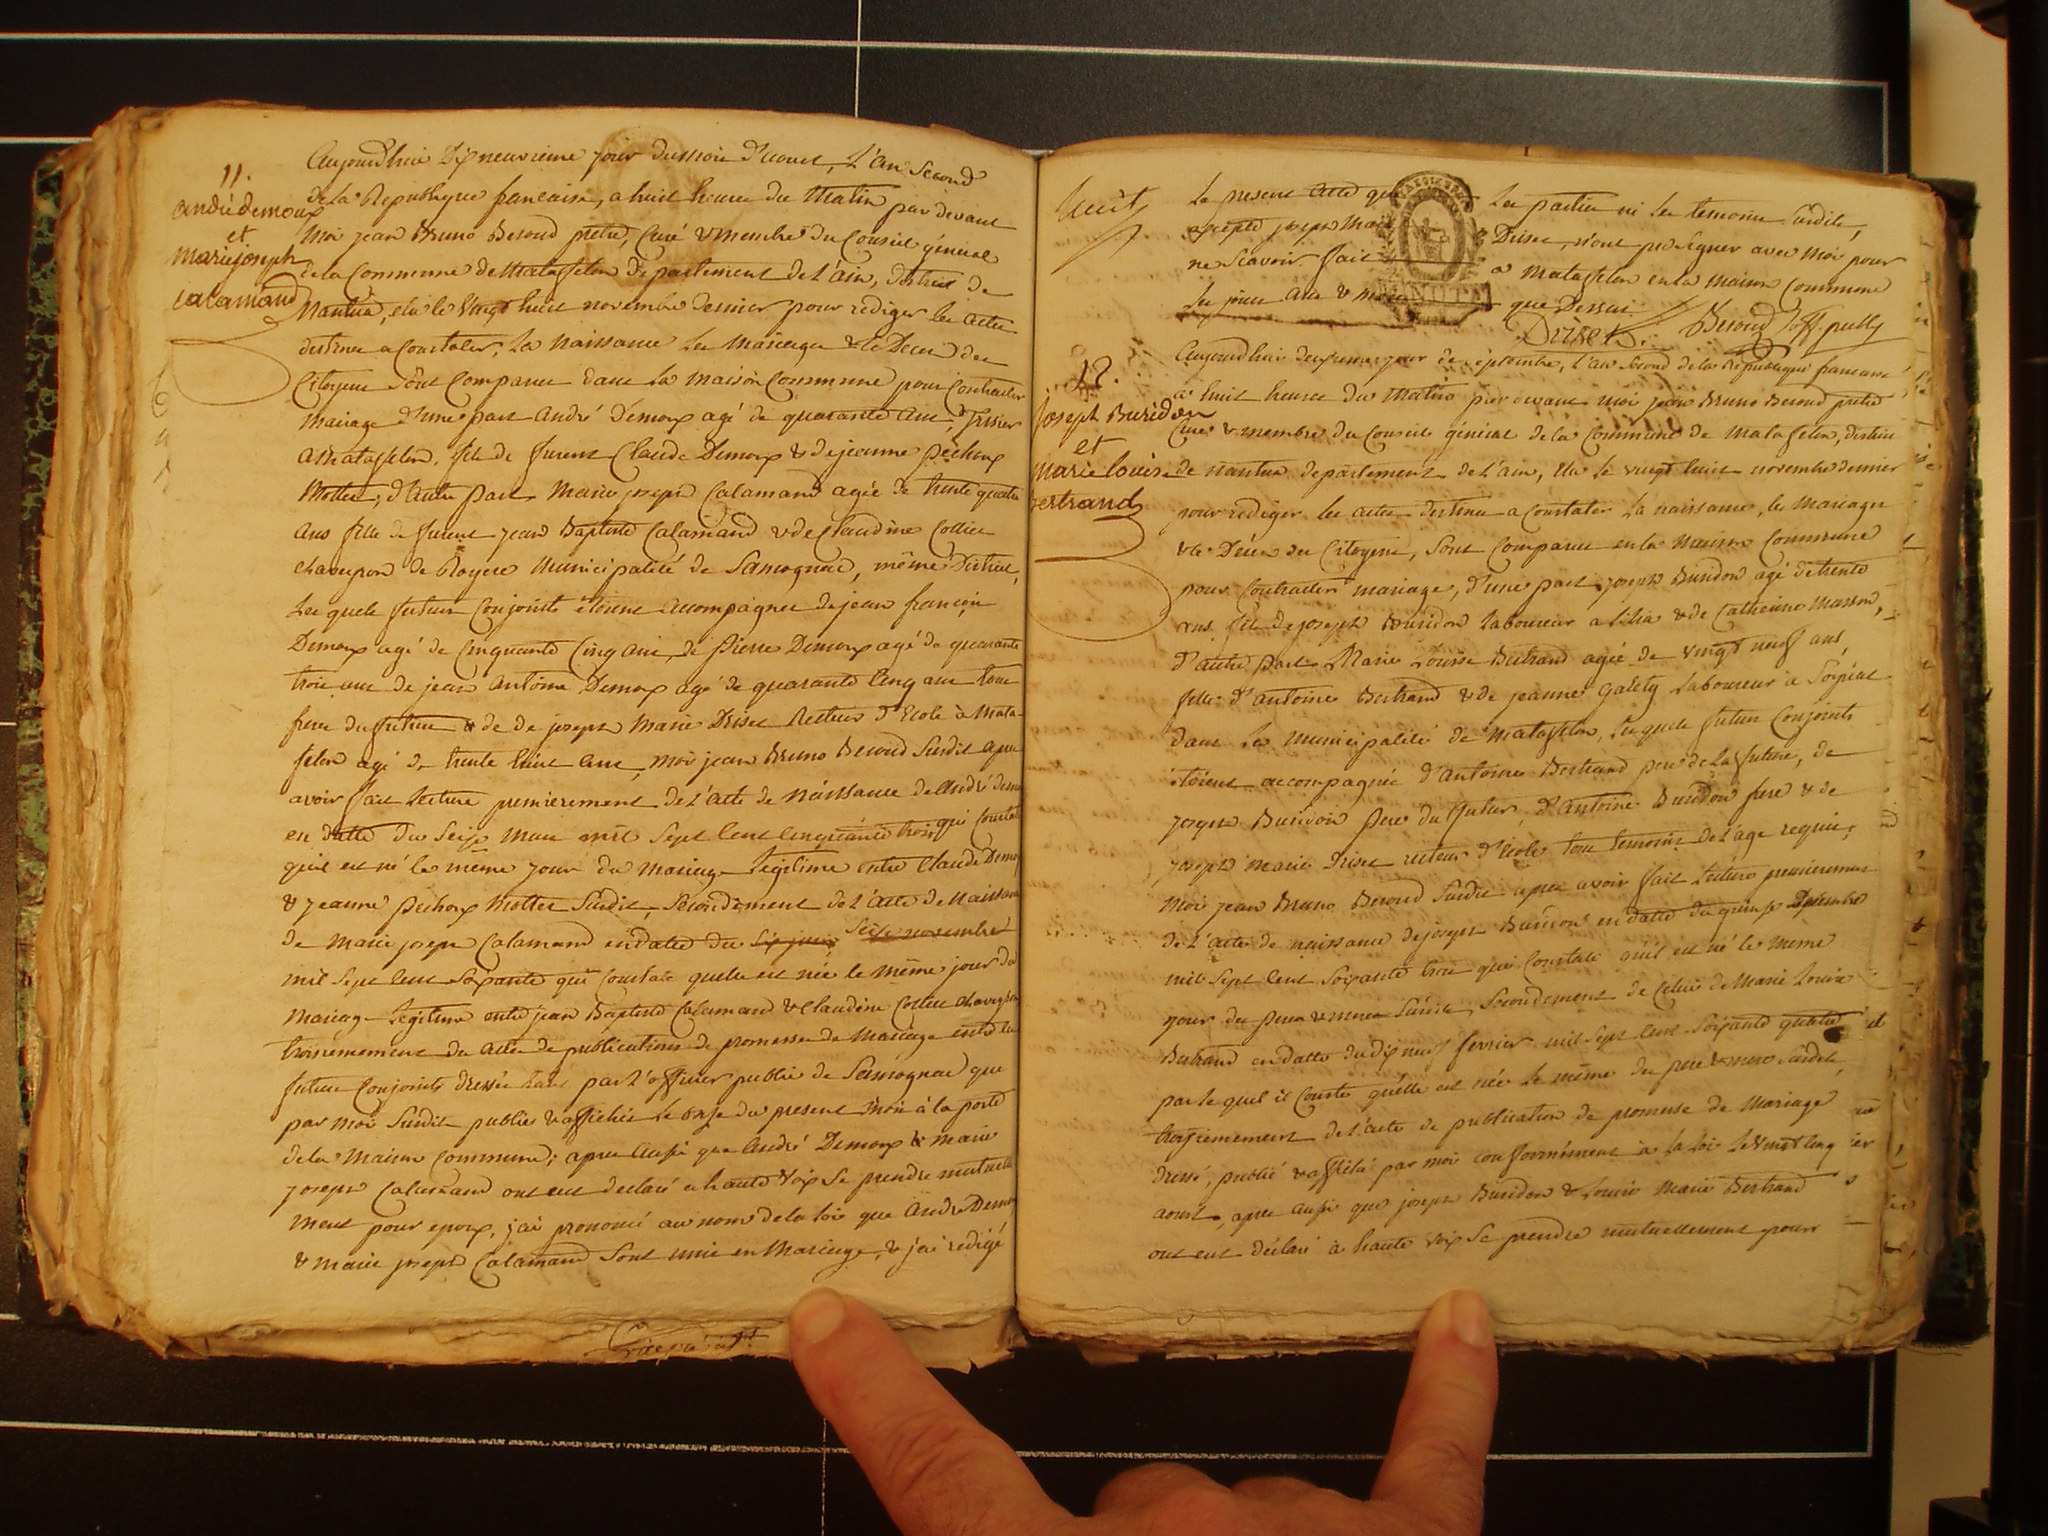 11.
andré demoux
et
marie joseph
calamand
Aujourd'huie Dixneuvieme jour dumois d'aoust, L'an Second
de la Republique francaise, a huit heure du Matin par devant
Moi jean Bruno Beroud prêtre, Curé & membre du Conseil général
de la Commune de Matafelon departement de L'ain, district de
Nantua, elu le Vingt huit novembre dernier pour rediger les actes
destinés a Constater, La Naissance Les Mariages & le Decès des
Citoyens Sont Comparus dans La Maison Commune pour Contracter
Mariage d'une part André Demoux agé de quarante ans,
a Matafelon, fils de furent Claude Demoux & de jeanne Pechoux
Mottet, d'autre part Marie joseph Calamand agée de trente quatre
ans fille de furent jean Baptiste Calamand & de Claudine Collet
chavepron de Royere Municipalité de Samognat, même District,
Les quels futurs Conjoints étoient accompagnes de jean françois
Demoux agé de Cinquante Cinq ans, de Pierre Demoux agé de quarante
trois ans de jean Antoine Demoux agé de quarante Cinq ans tous
frere du future & de de joseph Marie Driset Recteur d'Ecole à Mata-
felon agé de trente huit ans, Moi jean Bruno Beroud Susdit apres
avoir fait Lecture premierement de L'acte de Naissance de André demou
en datte du Seize Mars mil Sept Cent Cinquante trois qui Constate
quil est né le même jour du Mariage Légitime entre Claude Demoux
& jeanne Pechoux Mottet Susdit, Secondement de L'acte de Naissance
de Marie joseph Calamand en datte du Six juin Seize novembre
mil Sept Cent Soixante qui Constate quelle est née le Même jour du
Mariage Légitime entre jean Baptiste Calamand & Claudine Collet chavepron
troisiemement des actes de publications de promesses de Mariage entre les
future Conjoints dressée tant par L'officier public de Samognat que
par Moi Susdit publiés & affichés Le onze du present Mois à la porte
de la Maison Commune; apres Aussi que André Demoux & Marie
joseph Calamand ont eut declaré a haute Voix Se prendre mutuelle
ment pour epoux, j'ai prononcé au nom de la loi que André Demoux
& Marie joseph Calamand Sont unis en Mariage, & j'ai redigé
Le present acte que Les parties ni les temoins Susdits,
excepté joseph Marie Driset, n'ont pu Signer avec Moi pour
ne Scavoir fait a Matafelon en la Maison Commune
Les jours an & mois que Dessus
MINUTE
Driset. Beroud off publ
12.
Joseph Buridon
et
Marie louise
Bertrand
Aujourdhuie deuxieme jour de septembre, l'an Second de la Republique francaise
a huit heure du Matin par devant moi jean Bruno Beroud prêtre
Curé & membre du Conseil général de la Commune de Matafelon, district
de Nantua departement de L'ain, elu le vingt huit novembre dernier
pour rediger les actes destinés a Constater la naissance, les Mariages
& le Décès des Citoyens, Sont Comparus en la Maison Commune
pour Contracter mariage, d'une part joseph Buridon agé de trente
ans fils de joseph Buridon Laboureur a & de Catherine Masson,
d'autre part Marie Louise Bertrand agée de vingt neuf ans,
fille d'antoine Bertrand & de jeanne Gallety Laboureur a
dans La Municipalité de Matafelon, Lesquels futurs Conjoints
étoient accompagnés d'Antoine Bertrand pere de La future, de
joseph Buridon Pere du futur, d'Antoine Buridon frere & de
joseph marie Driset recteur d'école tous temoins de L'age requis,
Moi jean Bruno Beroud Susdit apres avoir fait Lecture premierement
de L'acte de naissance de joseph Buridon en datte du quinze Decembre
mil Sept Cent Soixante trois qui Constate quil est né le meme
jour des peres & meres Susdits, Secondement de Celui de Marie Louise
Bertrand en datte du dix neuf fevrier mil Sept Cent Soixante quatre
par le quel il Conste quelle est née le même des pere & mere Susdits,
troisiemement de L'acte de publication de promesse de Mariage
dressé, publié & affiché par moi conformément à la loi le Vingt Cinq
aoust, apres Aussi que joseph Buridon & Louise Marie Bertrand
ont eut déclaré à haute Voix Se prendre mutuellement pour